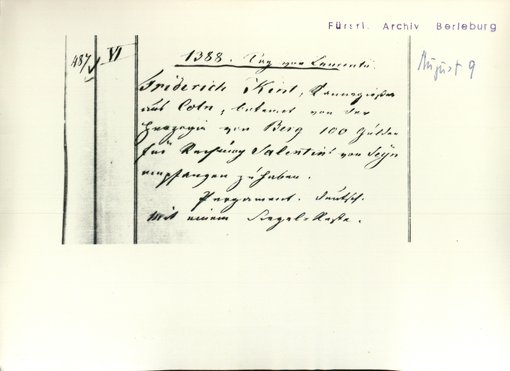 Fürstl. Archiv Berleburg
August 9
487 VI
1388. Tag vor Laurentii.
Friderich Kint, Kannegießer
aus Coln, bekennt von der
Herzogin von Berg 100 Gulden
für Rechnung Salentins von Seyn
empfangen zu haben.
Pergament. Deutsch.
Mit einem Siegel-Reste.